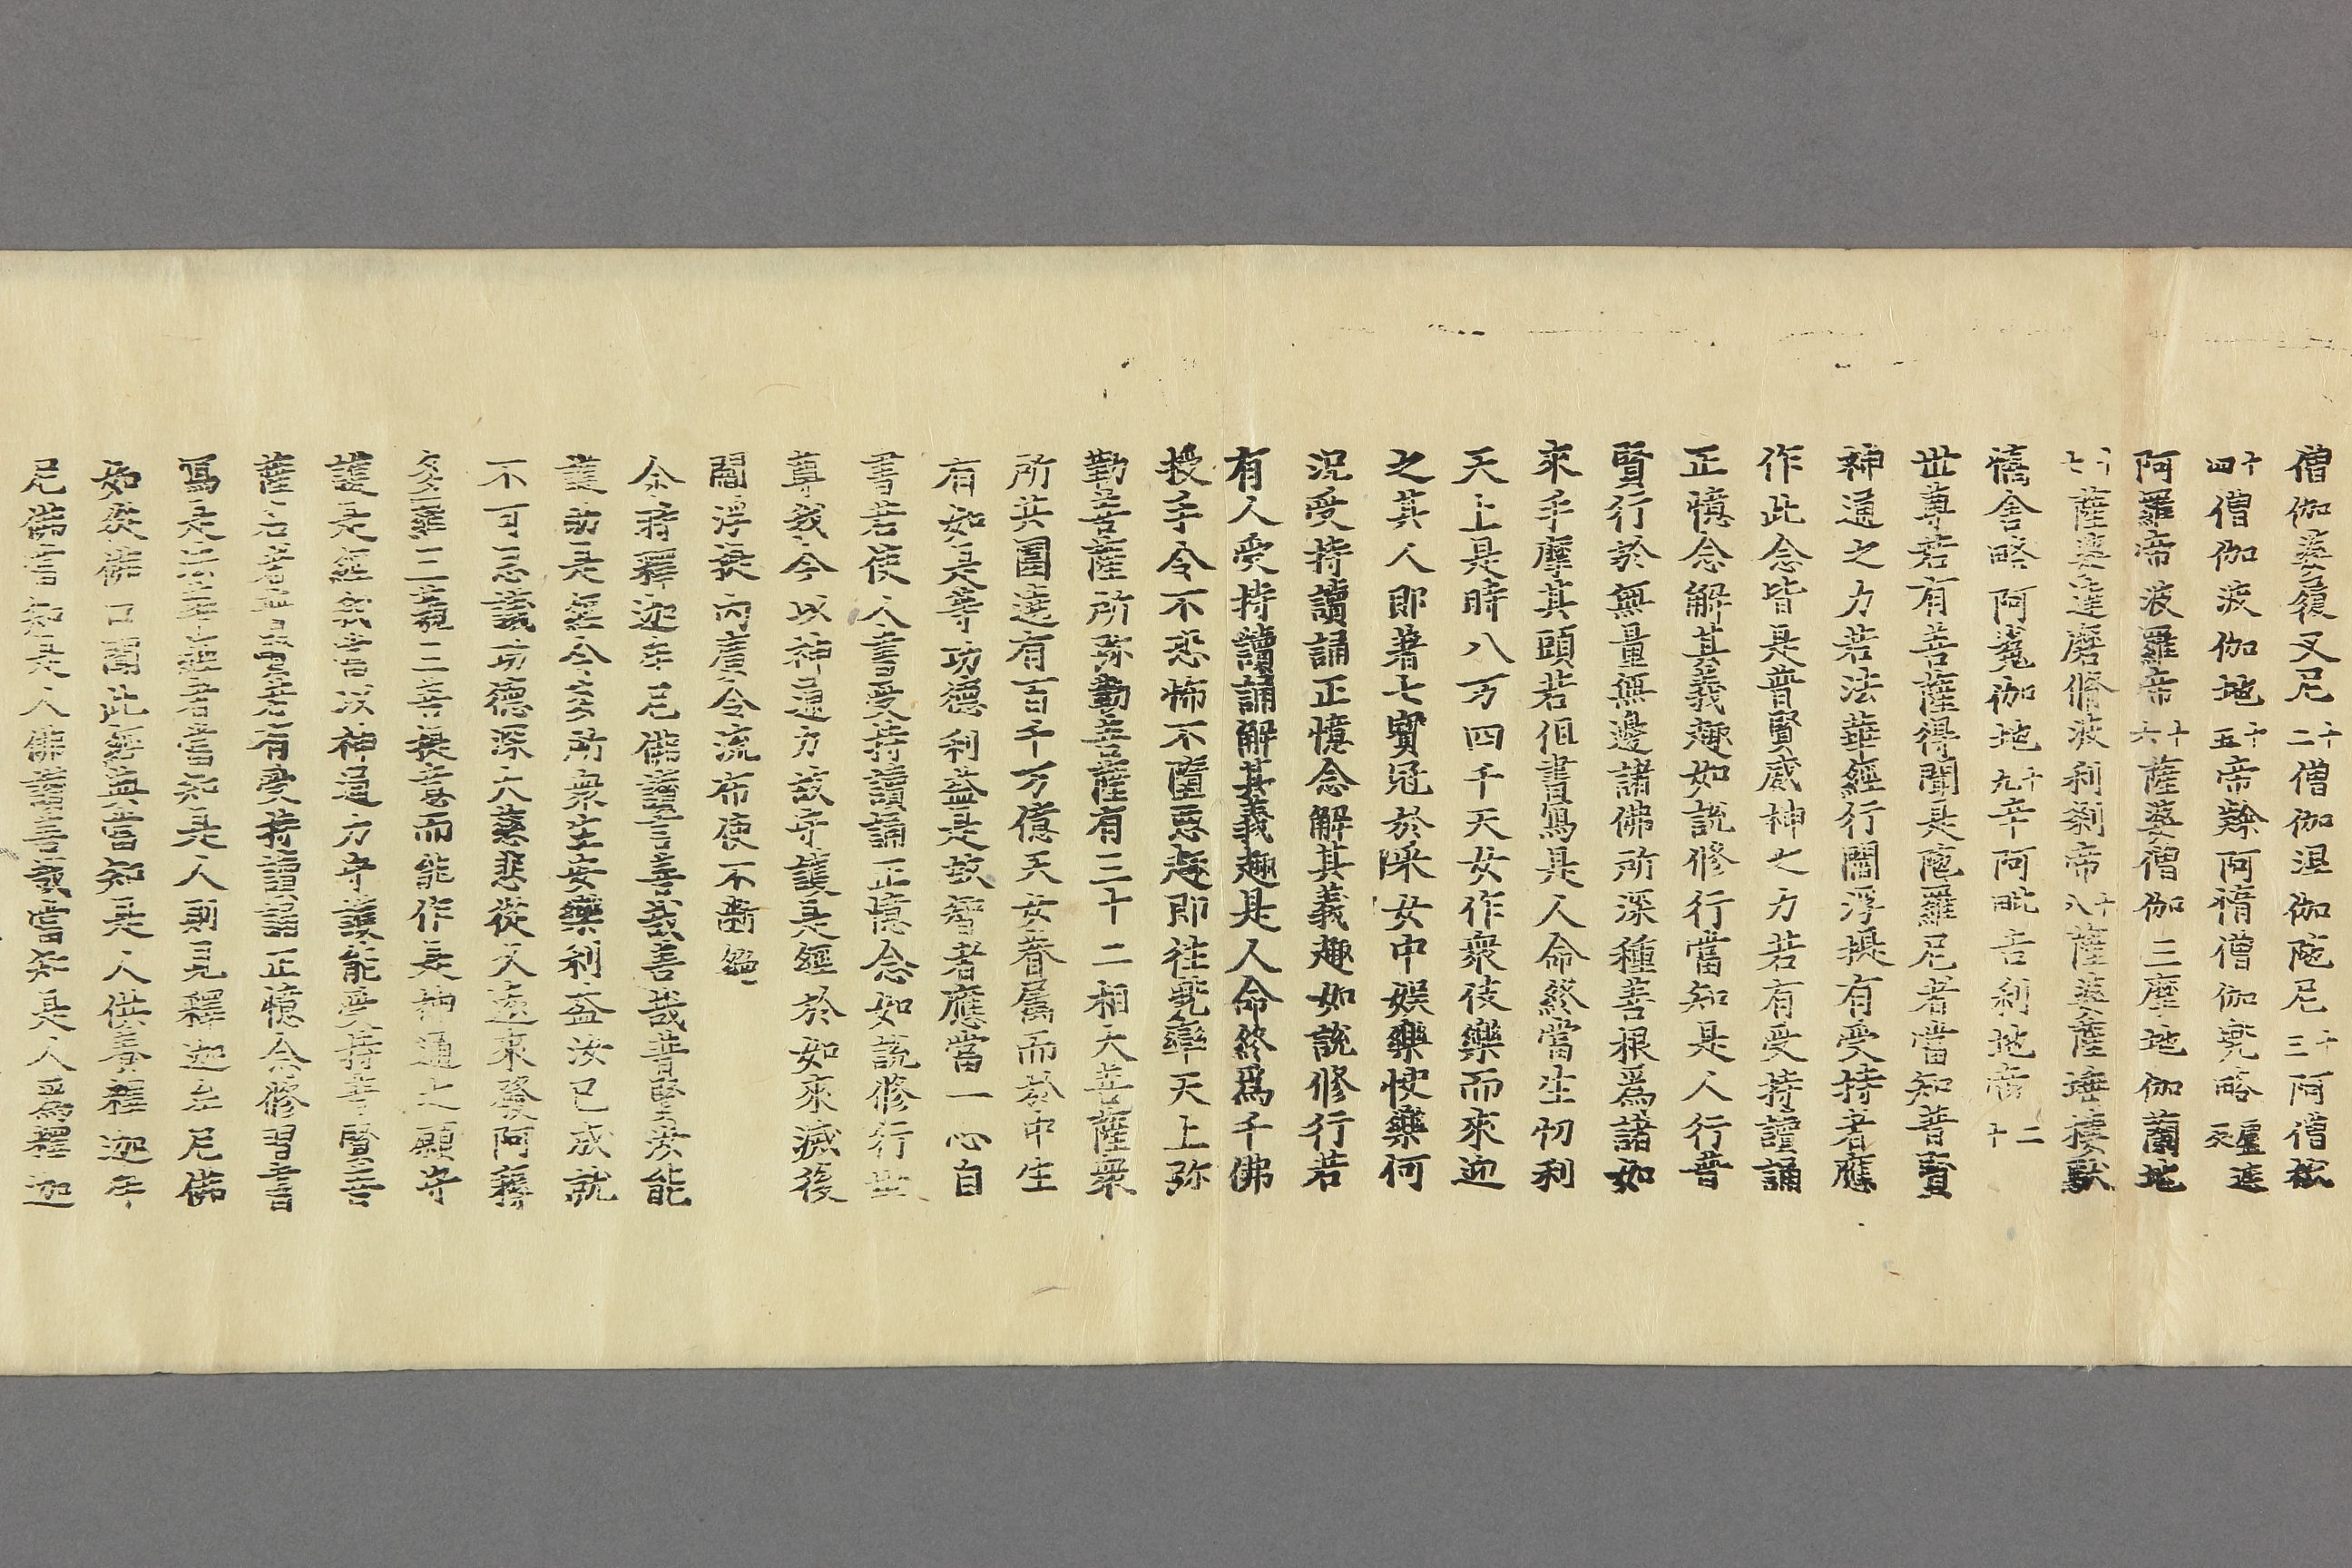 僧伽婆履叉尼十二僧伽涅伽陁尼十三阿僧祇
十四僧伽波伽地十五帝隸阿惰僧伽兜略盧遮反
阿羅帝波羅帝十六薩婆僧伽三摩地伽蘭地
十七薩婆達磨修波利剎帝十八薩婆薩埵樓馱
憍舍略阿㝹伽地十九辛阿毗吉利地帝二十
世尊若有菩薩得聞是陁羅尼者當知普賢
神通之力若法華經行閻浮提有受持者應
作此念皆是普賢威神之力若有受持讀誦
正憶念解其義趣如說修行當知是人行普
賢行於無量無邊諸佛所深種善根爲諸如
來手摩其頭若但書寫是人命終當生忉利
天上是時八万四千天女作衆伎樂而來迎
之其人即著七寶冠於采女中娛樂快樂何
況受持讀誦正憶念解其義趣如說修行若
有人受持讀誦解其義趣是人命終爲千佛
授手令不恐怖不墮惡趣即往兜率天上弥
勒菩薩所弥勒菩薩有三十二相大菩薩衆
所共圍遶有百千万億天女眷屬而於中生
有如是等功德利益是故智者應當一心自
書若使人書受持讀誦正憶念如說修行世
尊我今以神通力故守護是經於如來滅後
閻浮提內廣令流布使不斷絕
尒時釋迦牟尼佛讚言善哉善哉普賢汝能
護助是經令多所衆生安樂利益汝已成就
不可思議功德深大慈悲從久遠來發阿耨
多羅三藐三菩提意而能作是神通之願守
護是經我當以神通力守護能受持普賢菩
薩名者普賢若有受持讀誦正憶念修習書
寫是法華經者當知是人則見釋迦牟尼佛
如從佛口聞此經典當知是人供養釋迦牟
尼佛當知是人佛讚善哉當知是人爲釋迦